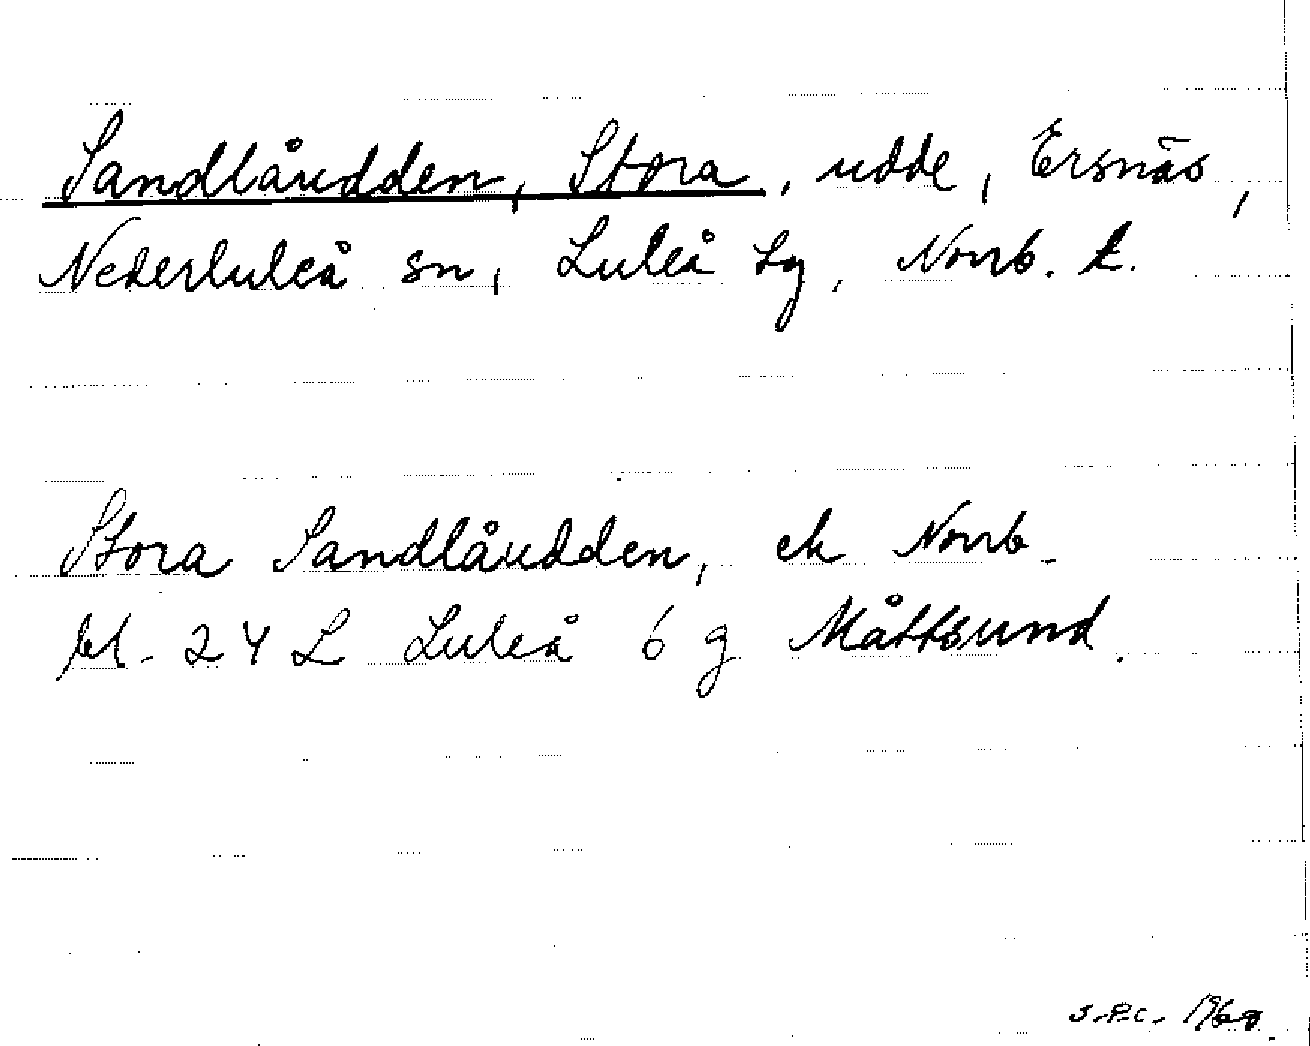 Sandlåudden, Stora, udde, Ersnäs,
Nederluleå sn, Luleå tg, Norrb. l.
Stora Sandlåudden, ek Norrb-
bl. 24 L Luleå 6 g Måttsund.
J.P.C. 1968